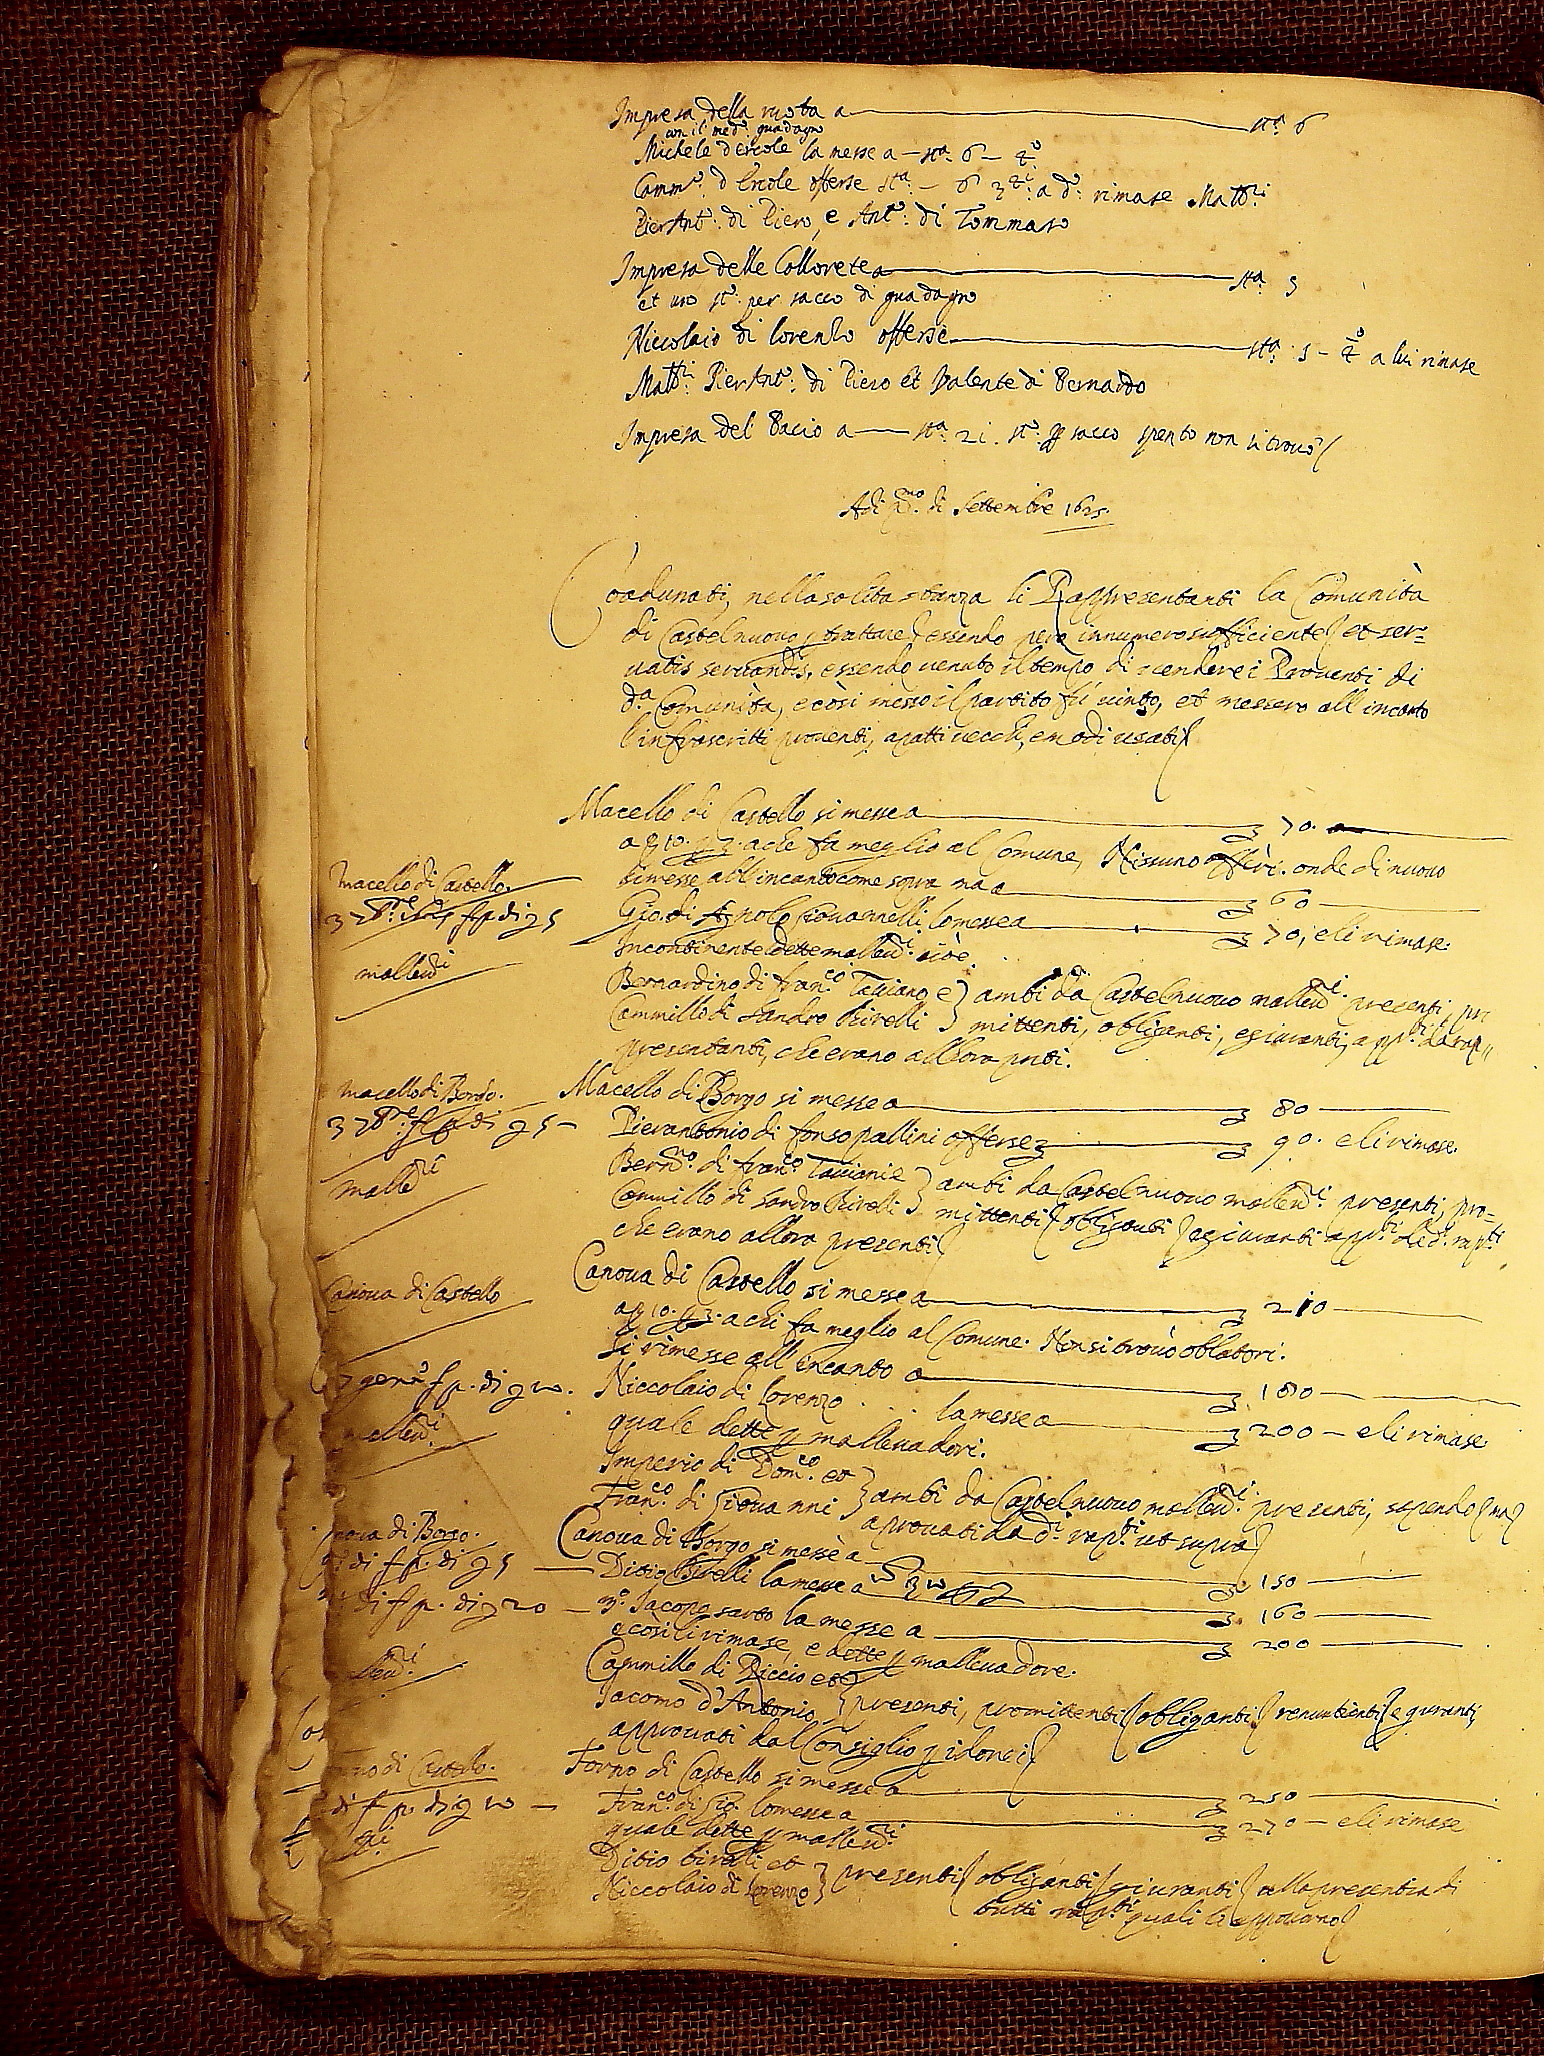 Impresa della ruota a sta: 6
con il med: guadagno
Michele d'Ercole la messe a — sta: 6 —
Camm: d'Ercole offerse sta: — 6 a d: rimase Matt:
PierAnt: di Piero, e Ant: di Tommaso
Impresa delle Collorete a sta: 5
et uno st: per sacco di guadagno
Niccolaio di Lorenzo offerse sta: 5 — a lui rimase
PierAnt: di Piero et Valente di Bernardo
Impresa del Bacio a — sta: 21. sto: sacco spento non si trovò
Adi p.mo di Settembre 1625.
Coadunati, nella solita stanza li Rappresentanti la Comunità
di Castelnuovo p trattare essendo però in numero sufficiente et ser=
vatis servandis, essendo venuto il tempo di vendere i Proventi di
d.a Comunità, e così messo il partito fù vinto, et messero all incanto
l'infrascritti proventi, a patti vecchi, e modi usati
Macello di Castello si messe a 70.
a chi fa meglio al Comune, Nissuno offerì. onde di nuovo
si messe all'incanto come sopra ma a 60
Macello di Castello.
Gio: di Agnolo Giovannelli lo messe a 70, e li rimase.
Incontinente dette mallevi cioè
mallevi
Bernardino di Fran.co Tacciano e ambi da Castelnuovo mallevi presenti, pro
Cammillo di Sandro Birelli mittenti, obliganti, e giuranti, app.ti da rap
presentanti, che erano allora pnti.
macello di Borgo.
Macello di Borgo si messe a 80
Pierantonio di fonso pallini offerse 90. e li rimase.
Bern.no di fran.co Taccianie ambi da Castelnuovo mallevi presenti, pro=
mallevi
Cammillo di Sandro Birelli mittenti obliganti e giuranti app.ti da d. rap.ti
che erano allora presenti
Canova di Castello
Canova di Castello si messe a 210
a chi fa meglio al Comune. Non si trovò oblatori.
Si rimesse all incanto a 180
Niccolaio di Lorenzo . . . la messe a 200 — e li rimase
quale dette p mallevadori.
Imperio di Dom.co et
Fran.co di Giovanni ambi da Castelnuovo mallevi presenti,
aprovati da d.i rap.ti ut supra
Canova di Borgo si messe a 150
Ditio Birelli la messe a 160
m.o Iacopo sarto la messe a 200
e così li rimase, e dette p mallevadore.
Cammillo di Riccio et
Iacomo d'Antonio presenti, promittenti obliganti renuntianti e giuranti,
approvati dal Consiglio p idonei
Forno di Castello si messe a 250
Fran.co di Gio: lo messe a 270 — e li rimase
quale dette p mallevi
Ditio birelli et
Niccolaio di Lorenzo presenti obliganti giuranti alla presentia di
tutti rap.ti quali li approvarno